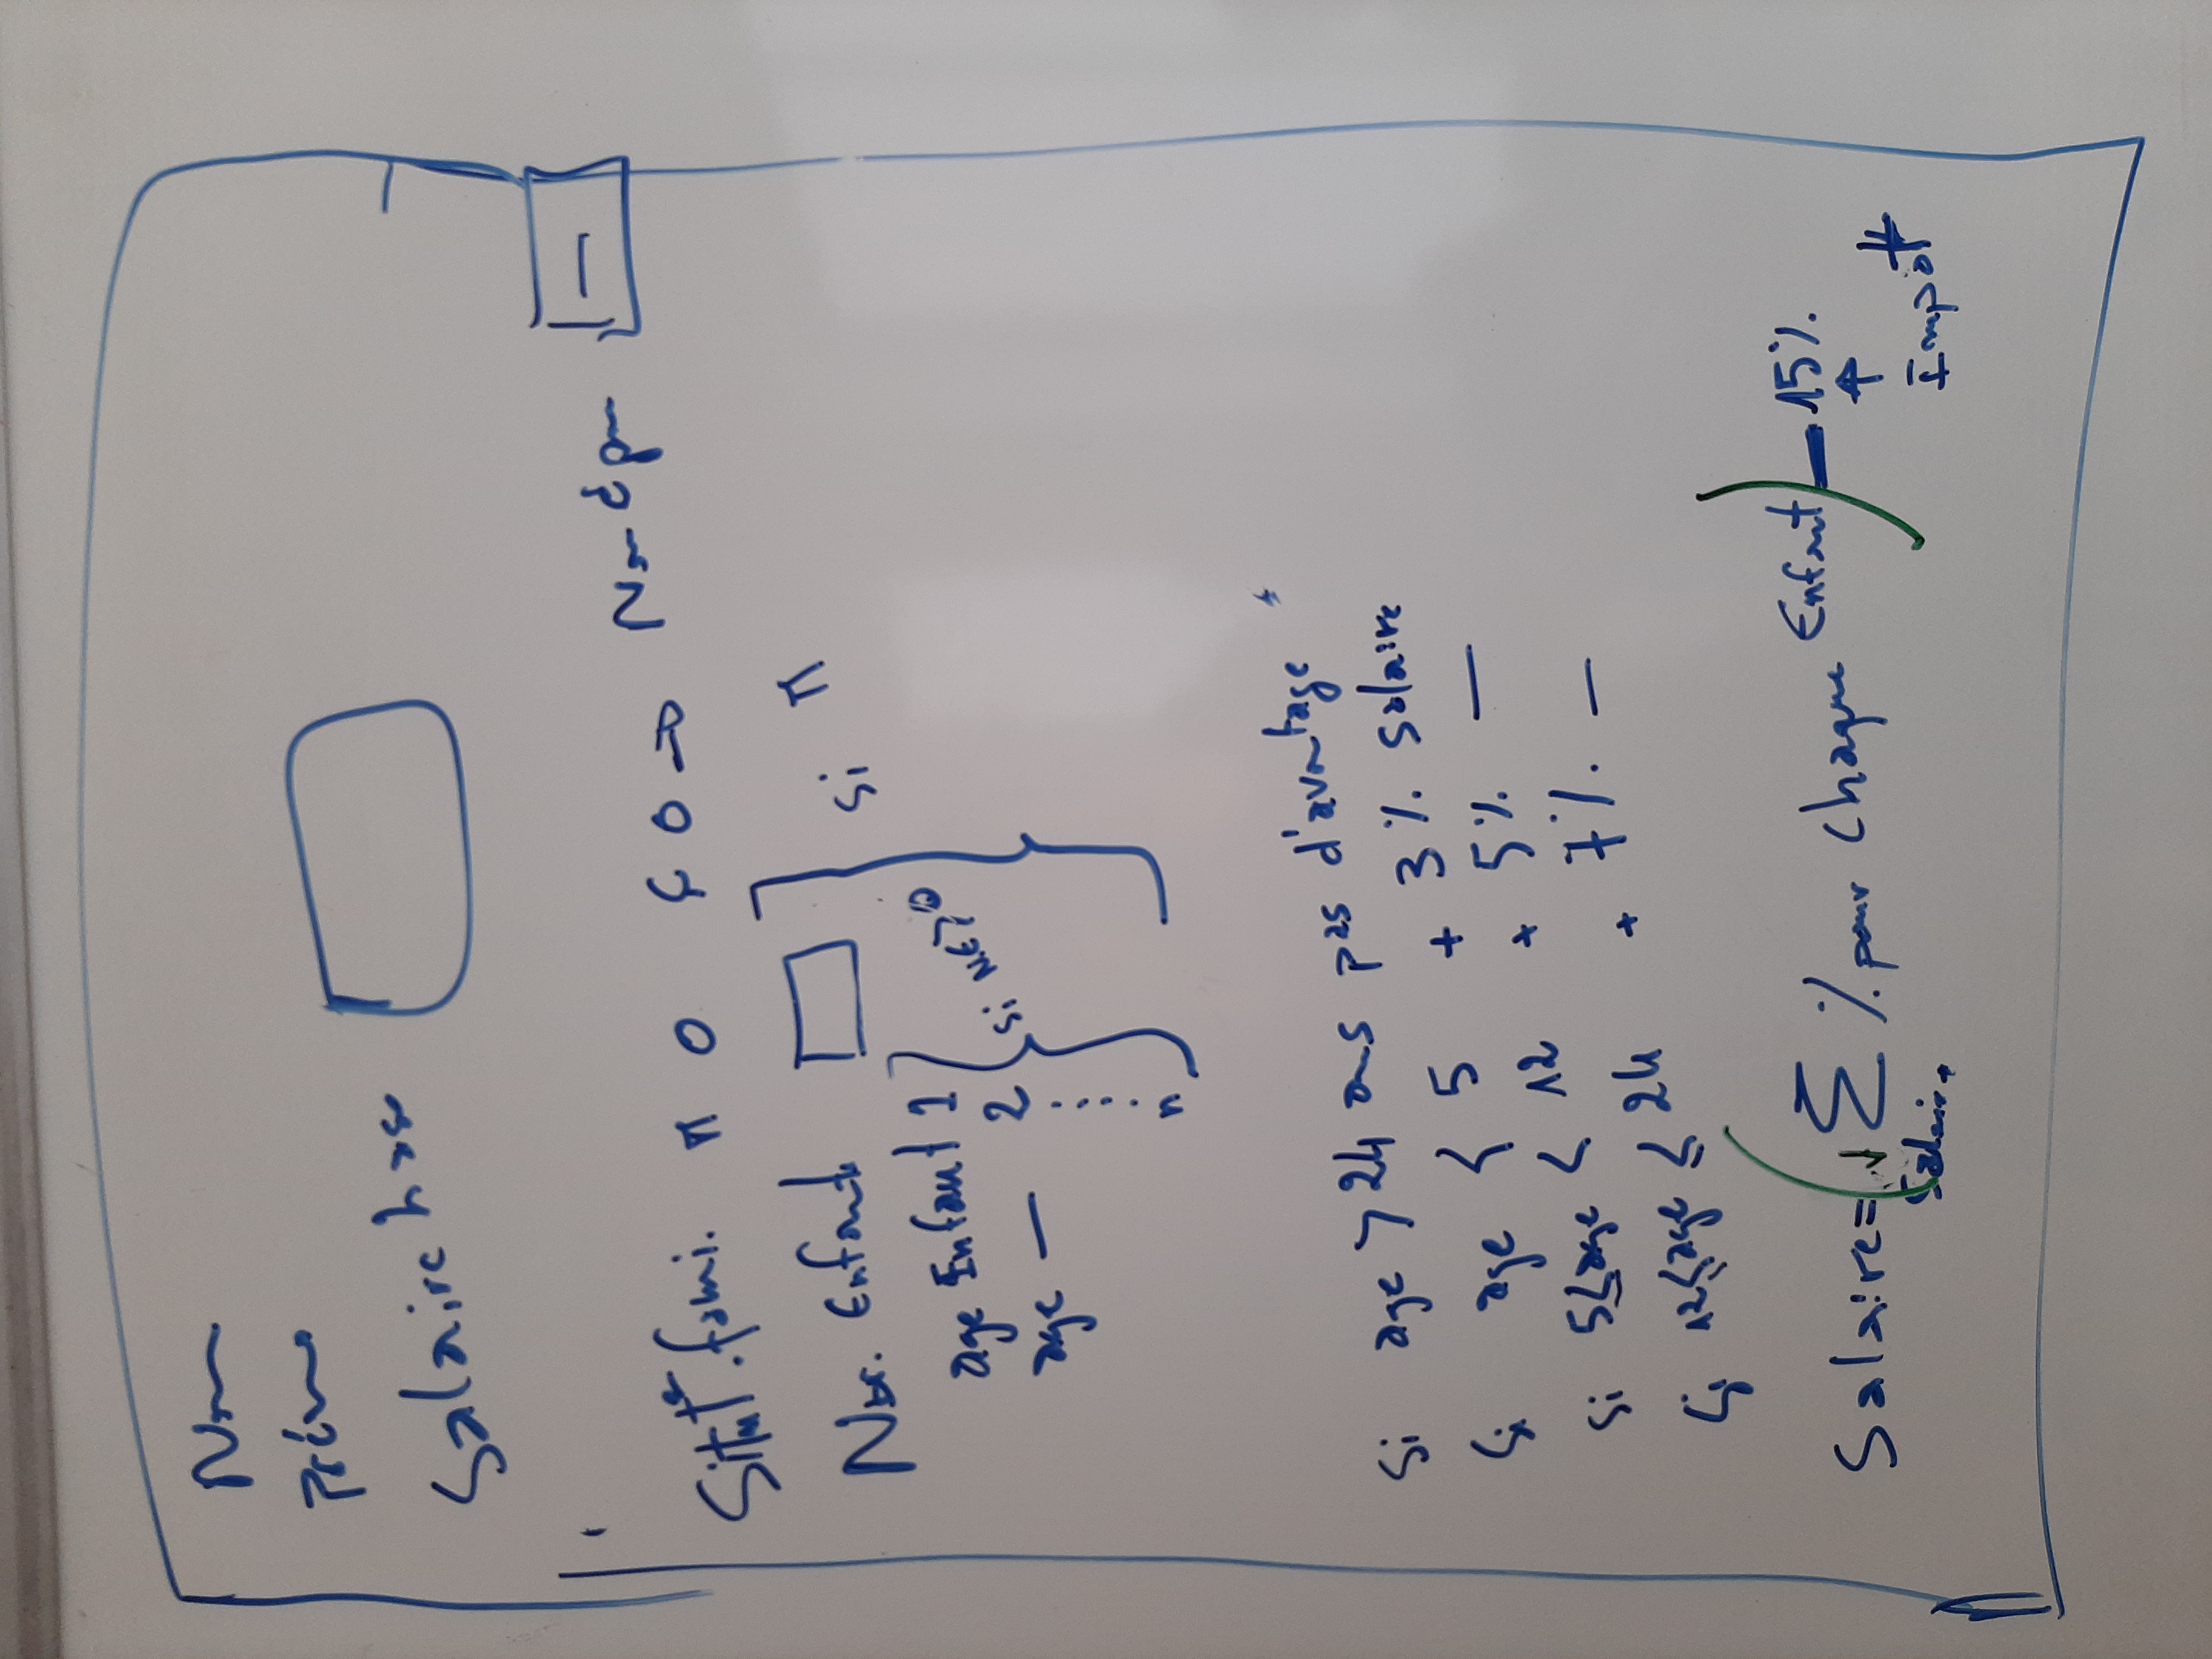 Nom
Prénom
Salaire base
Situat°. fami. M O C O ⇒ Nom épou
Nbr. Enfants
si M
age Enfant 1
age — 2
n
si N.E > 0
Si age > 24 ans pas d'avantage
Si age < 5 + 3% Salaire
Si 5 ≤ age < 12 + 5% —
Si 12 ≤ age ≤ 24 + 7% —
Salaire = ( Σ % pour chaque Enfant ) - 15%
Salaire +
Impôt